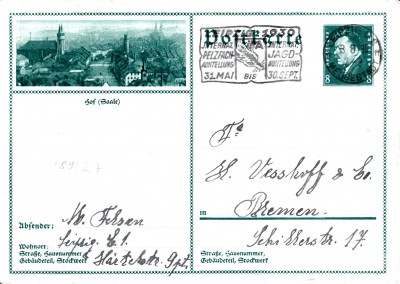 Postkarte
1930
INTERNAT.
PELZFACH-
AUSSTELLUNG
31. MAI
BIS
INTERNAT.
JAGD-
AUSSTELLUNG
30. SEPT.
8
Hof (Saale)
Fa
H. Vesshoff & Co.
in Bremen.
Schillerstr. 17.
Absender:
Wohnort: Leipzig C 1.
Straße, Hausnummer,
Gebäudeteil, Stockwerk
Härtelstr. 9 pt.
Straße, Hausnummer,
Gebäudeteil, Stockwerk